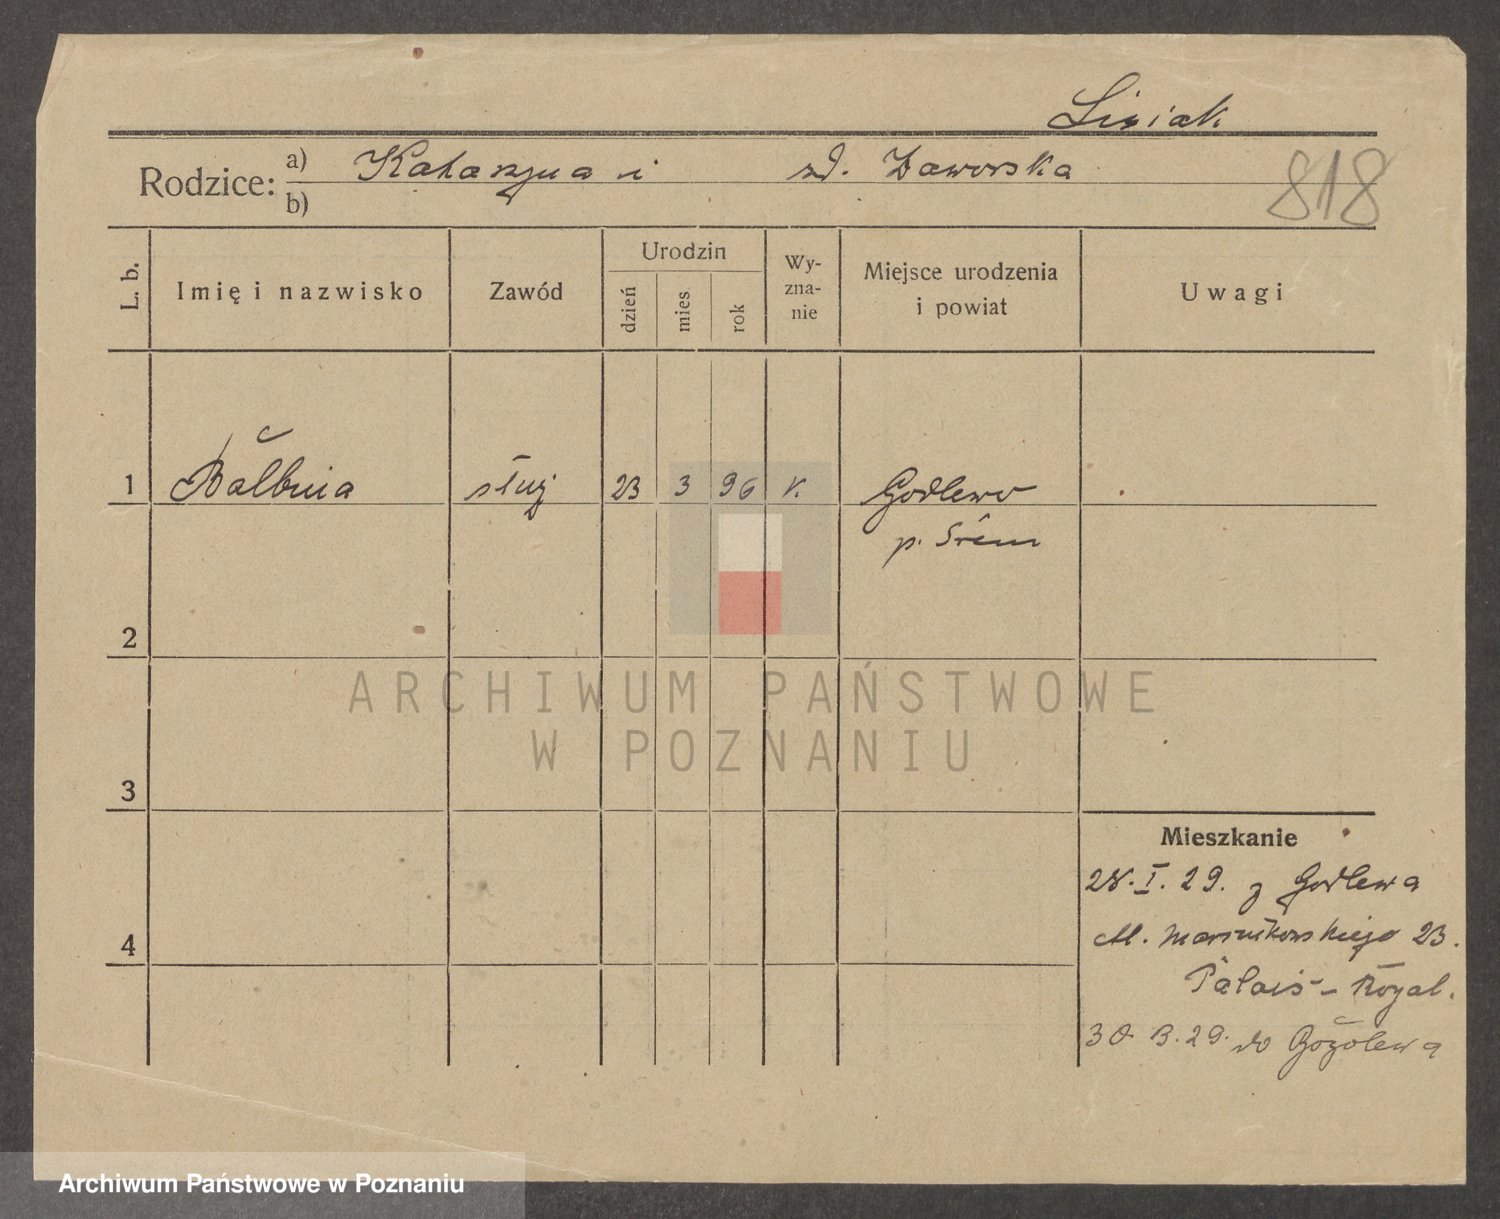 Lisiak
Rodzice: a) Katarzyna i zd. Jaworska
b)
818
L. b.
Imię i nazwisko
Zawód
Urodzin
dzień
mies.
rok
Wy-
zna-
nie
Miejsce urodzenia
i powiat
Uwagi
1 Balbina służ 23 3 96 k. Godlewo
p. Śrem
2
3
4
Mieszkanie
28. I. 29. z Godlewa
M. 23.
Palais - Royal.
30. 3. 29. do
ARCHIWUM PAŃSTWOWE
W POZNANIU
Archiwum Państwowe w Poznaniu